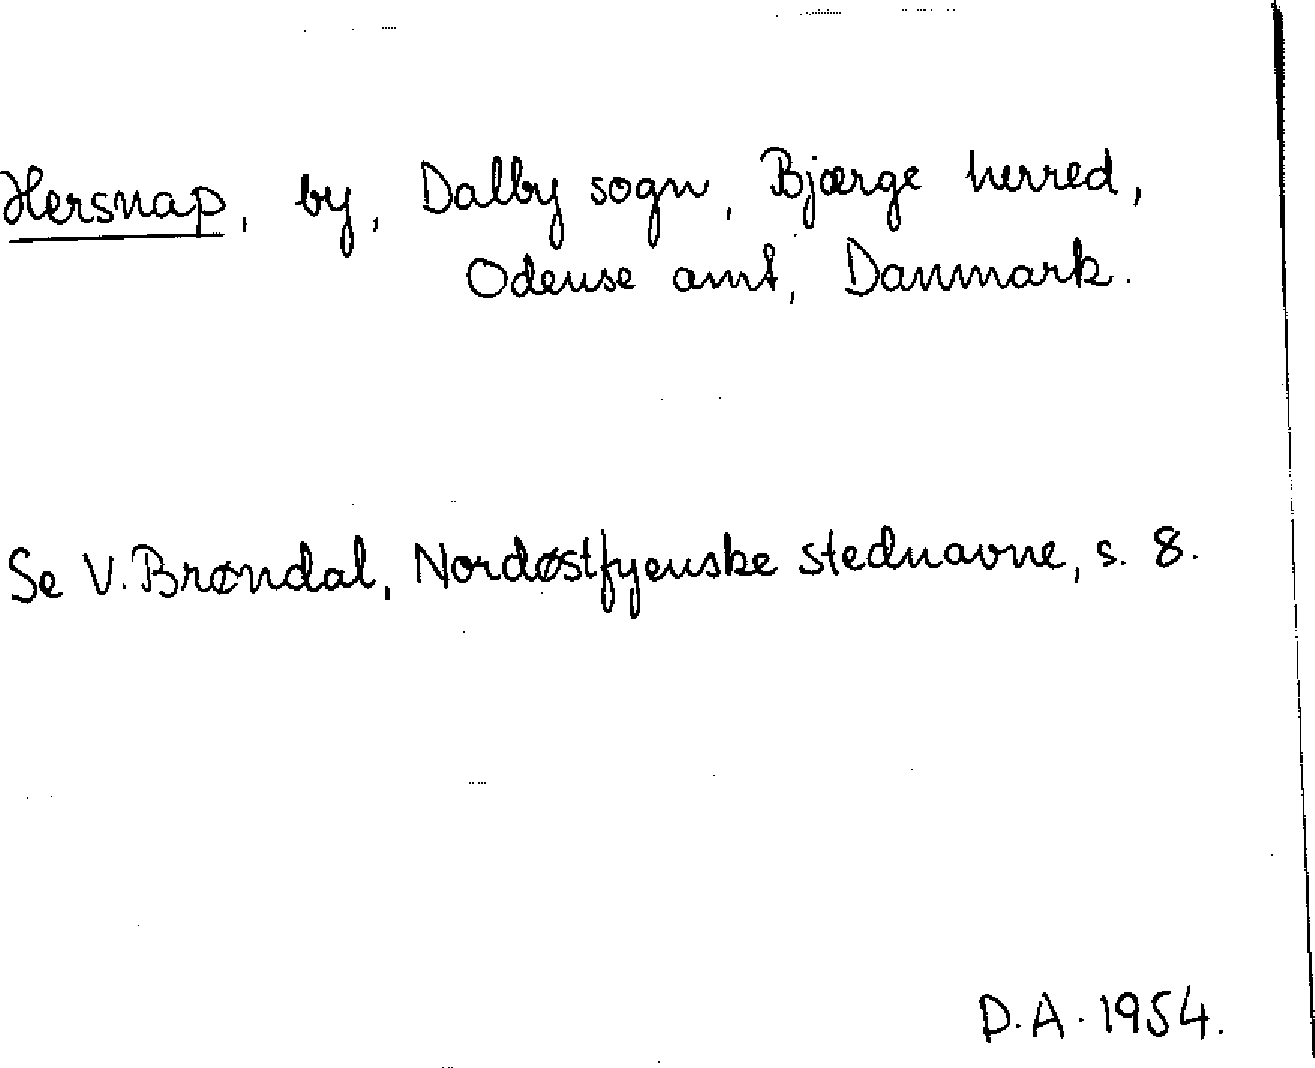 Hersnap, by, Dalby sogn, Bjærge herred,
Odense amt, Danmark.
Se V. Brøndal, Nordøstfyenske stednavne, s. 8.
D.A. 1954.